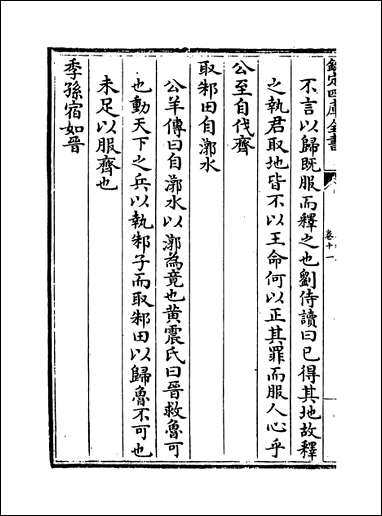 欽定四庫全書
卷十一
不言以歸既服而釋之也劉侍讀曰已得其地故釋
之執君取地皆不以王命何以正其罪而服人心乎
公至自伐齊
取邾田自漷水
公羊傳曰自漷水以漷為竟也黄震氏曰晉救魯可
也動天下之兵以執邾子而取邾田以歸魯不可也
未足以服齊也
季孫宿如晉